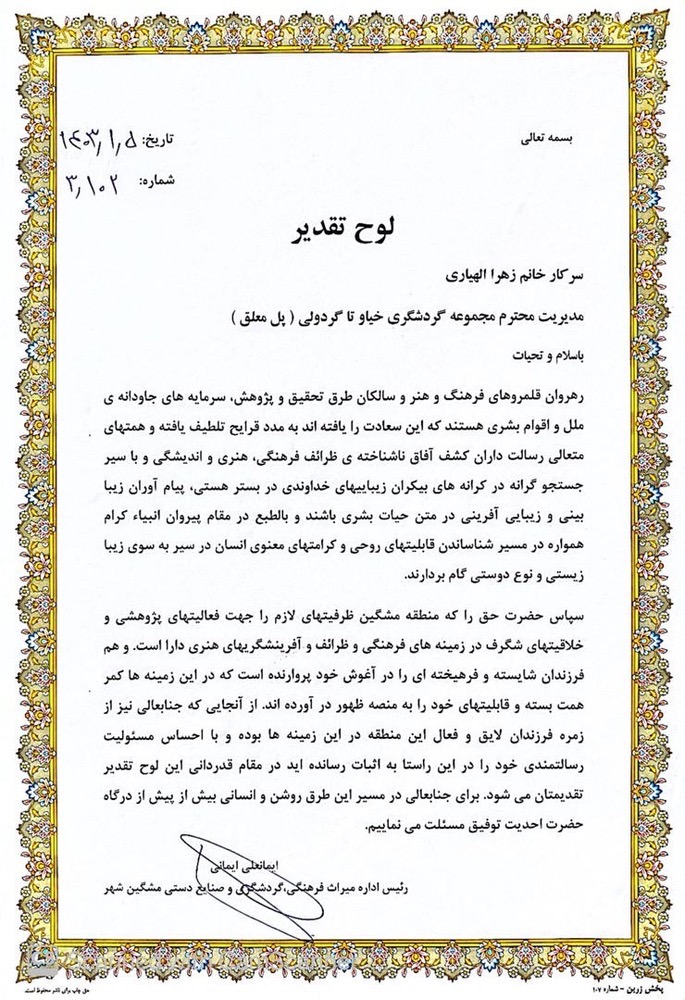 بسمه تعالی
تاریخ: ۱۴۰۳/۱/۵
شماره: ۳/۱۰۲
لوح تقدیر
سرکار خانم زهرا الهیاری
مدیریت محترم مجموعه گردشگری خیاو تا گردولی ( پل معلق )
باسلام و تحیات
رهروان قلمروهای فرهنگ و هنر و سالکان طرق تحقیق و پژوهش، سرمایه های جاودانه ی
ملل و اقوام بشری هستند که این سعادت را یافته اند به مدد قرایح تلطیف یافته و همتهای
متعالی رسالت داران کشف آفاق ناشناخته ی ظرائف فرهنگی، هنری و اندیشگی و با سیر
جستجو گرانه در کرانه های بیکران زیباییهای خداوندی در بستر هستی، پیام آوران زیبا
بینی و زیبایی آفرینی در متن حیات بشری باشند و بالطبع در مقام پیروان انبیاء کرام
همواره در مسیر شناساندن قابلیتهای روحی و کرامتهای معنوی انسان در سیر به سوی زیبا
زیستی و نوع دوستی گام بردارند.
سپاس حضرت حق را که منطقه مشگین ظرفیتهای لازم را جهت فعالیتهای پژوهشی و
خلاقیتهای شگرف در زمینه های فرهنگی و ظرائف و آفرینشگریهای هنری دارا است. و هم
فرزندان شایسته و فرهیخته ای را در آغوش خود پروارنده است که در این زمینه ها کمر
همت بسته و قابلیتهای خود را به منصه ظهور در آورده اند. از آنجایی که جنابعالی نیز از
زمره فرزندان لایق و فعال این منطقه در این زمینه ها بوده و با احساس مسئولیت
رسالتمندی خود را در این راستا به اثبات رسانده اید در مقام قدردانی این لوح تقدیر
تقدیمتان می شود. برای جنابعالی در مسیر این طرق روشن و انسانی بیش از پیش از درگاه
حضرت احدیت توفیق مسئلت می نماییم.
ایمانعلی ایمانی
رئیس اداره میراث فرهنگی،گردشگری و صنایع دستی مشگین شهر
پخش زرین - شماره ۱۰۷
حق چاپ برای ناشر محفوظ است.